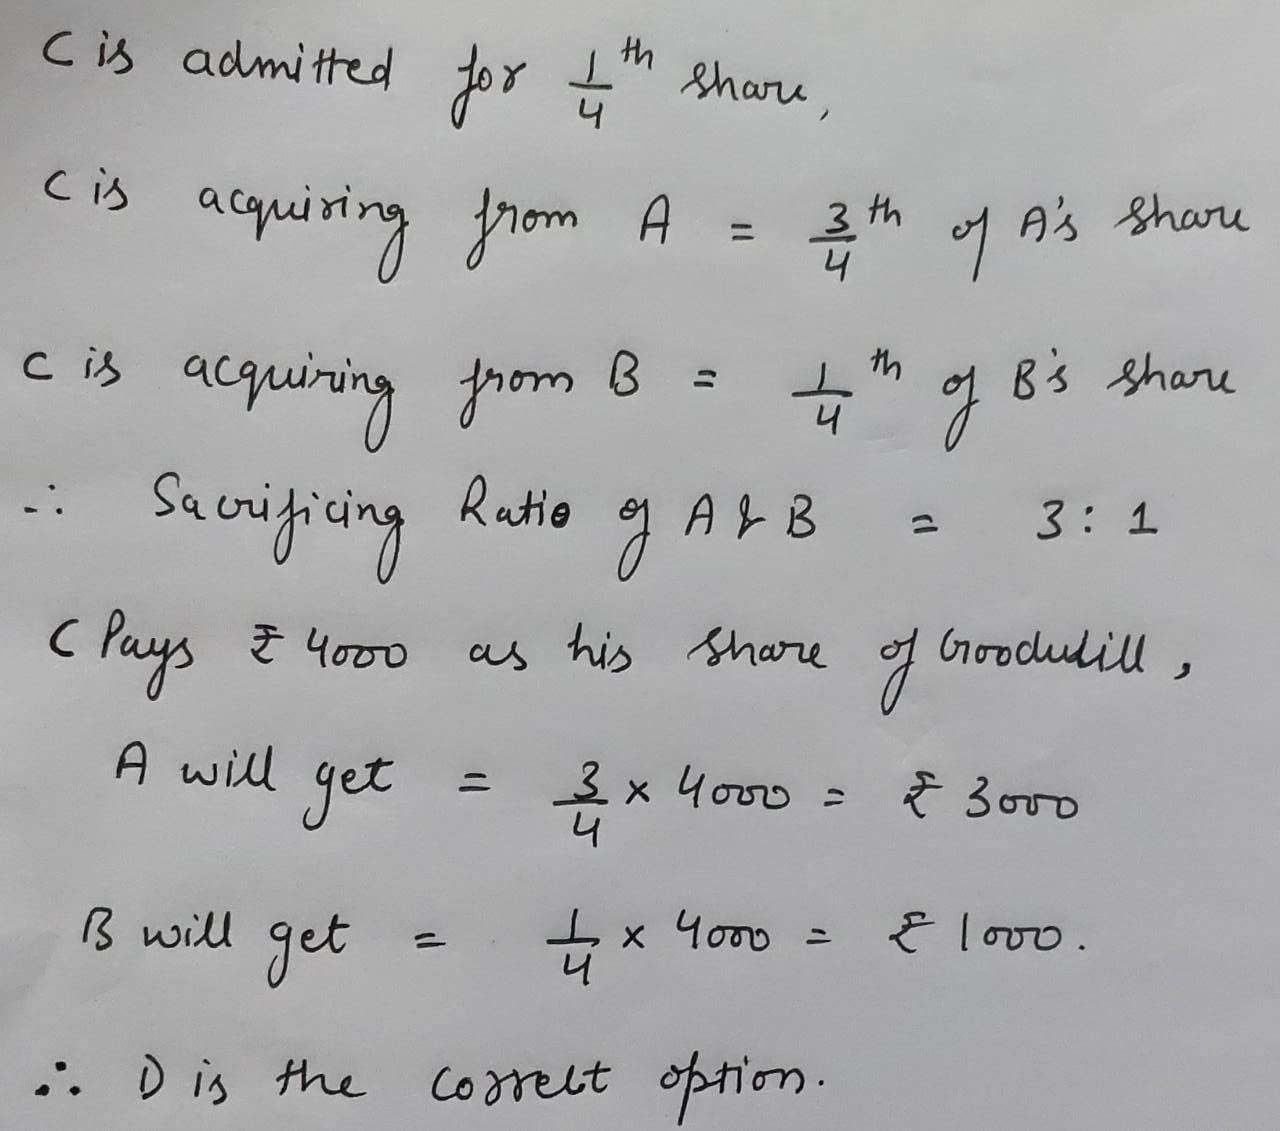 C is admitted for 1/4 th share,
C is acquiring from A = 3/4 th of A's share
C is acquiring from B = 1/4 th of B's share
∴ Sacrificing Ratio of A & B = 3 : 1
C Pays ₹ 4000 as his share of Goodwill,
A will get = 3/4 × 4000 = ₹ 3000
B will get = 1/4 × 4000 = ₹ 1000.
∴ D is the correct option.